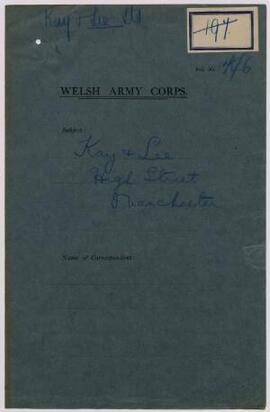 Kay & Lee Ltd
197
File No.
WELSH ARMY CORPS.
Subject:
Kay & Lee
High Street
Manchester
Name of Correspondent: